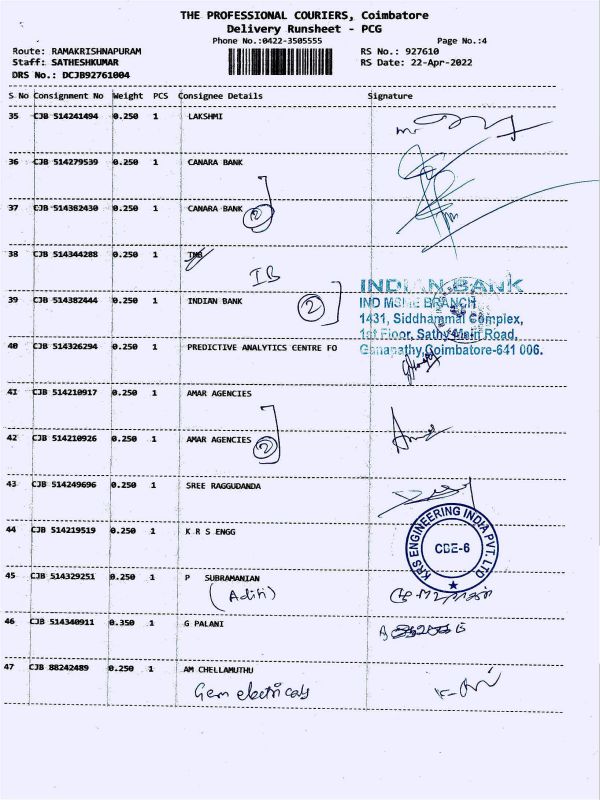 THE PROFESSIONAL COURIERS, Coimbatore
Delivery Runsheet - PCG
Phone No.:0422-3505555 Page No.:4
Route: RAMAKRISHNAPURAM RS No.: 927610
Staff: SATHESHKUMAR RS Date: 22-Apr-2022
DRS No.: DCJB92761004
S No Consignment No Weight PCS Consignee Details Signature
35 CJB 514241494 0.250 1 LAKSHMI
36 CJB 514279539 0.250 1 CANARA BANK
37 CJB 514362430 0.250 1 CANARA BANK 2
38 CJB 514344288 0.250 1 TMB
IB
39 CJB 514382444 0.250 1 INDIAN BANK 2
INDIAN BANK
IND MSME BRANCH
1431, Siddhammal Complex,
1st Floor, Sathy Main Road,
Ganapathy,Coimbatore-641 006.
40 CJB 514326294 0.250 1 PREDICTIVE ANALYTICS CENTRE FO
41 CJB 514210917 0.250 1 AMAR AGENCIES
42 CJB 514210926 0.250 1 AMAR AGENCIES 2
43 CJB 514249696 0.250 1 SREE RAGGUDANDA
44 CJB 514219519 0.250 1 K R S ENGG
KRS ENGINEERING INDIA PVT. LTD
CBE-6
45 CJB 514329251 0.250 1 P SUBRAMANIAN
(Aditi)
46 CJB 514340911 0.350 1 G PALANI
47 CJB 88242489 0.250 1 AM CHELLAMUTHU
Gem electricals